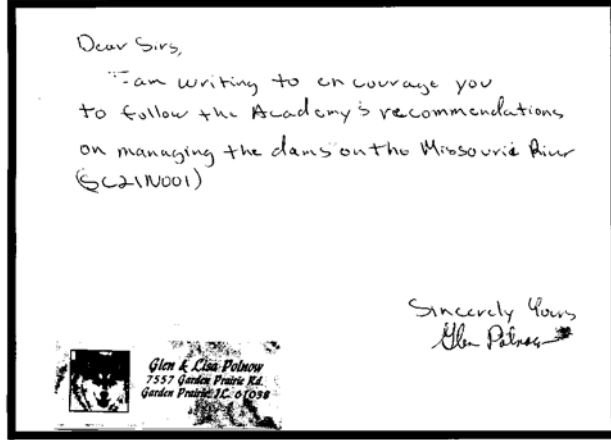 Dear Sirs,
I am writing to encourage you
to follow the Academy's recommendations
on managing the dams on the Missourie River
(SC21N001)
Sincerely Yours
Glen Polnow
Glen & Lisa Polnow
7557 Garden Prairie Rd.
Garden Prairie IL 61038